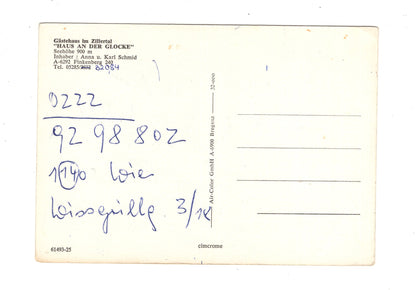 Gästehaus im Zillertal
"HAUS AN DER GLOCKE"
Seehöhe 900 m
Inhaber: Anna u. Karl Schmid
A-6292 Finkenberg 240
Tel. 05285/ 82084
0222
92 98 802
1140 Wien
3/14
Air-Color GmbH A-6900 Bregenz
61493-25
elmcrome